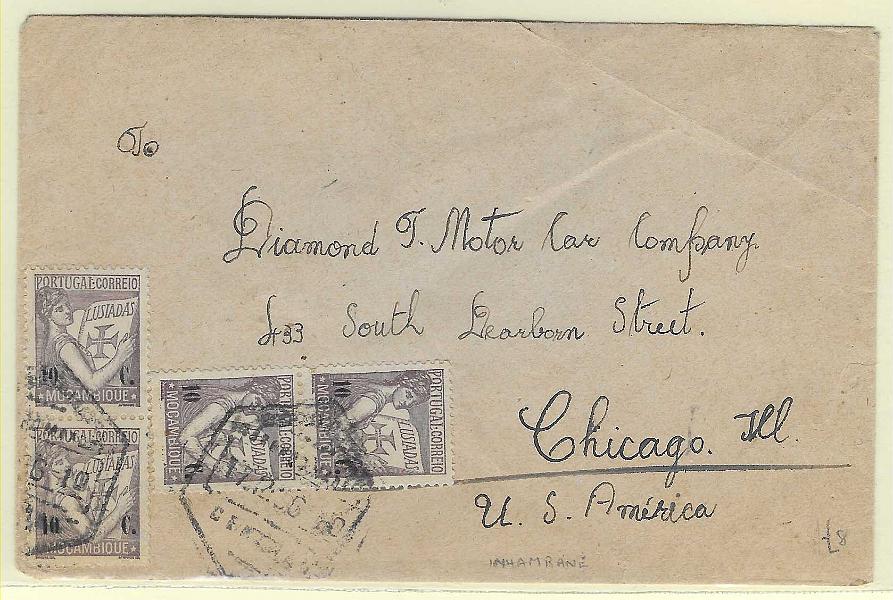 To
Diamond T. Motor Car Company.
433 South Dearborn Street.
Chicago. Ill.
U. S. América
PORTUGAL·CORREIO
LUSIADAS
10 C.
MOÇAMBIQUE
PORTUGAL·CORREIO
LUSIADAS
10 C.
MOÇAMBIQUE
PORTUGAL·CORREIO
LUSIADAS
10 C.
MOÇAMBIQUE
PORTUGAL·CORREIO
LUSIADAS
10 C.
MOÇAMBIQUE
INHAMBANE
£8